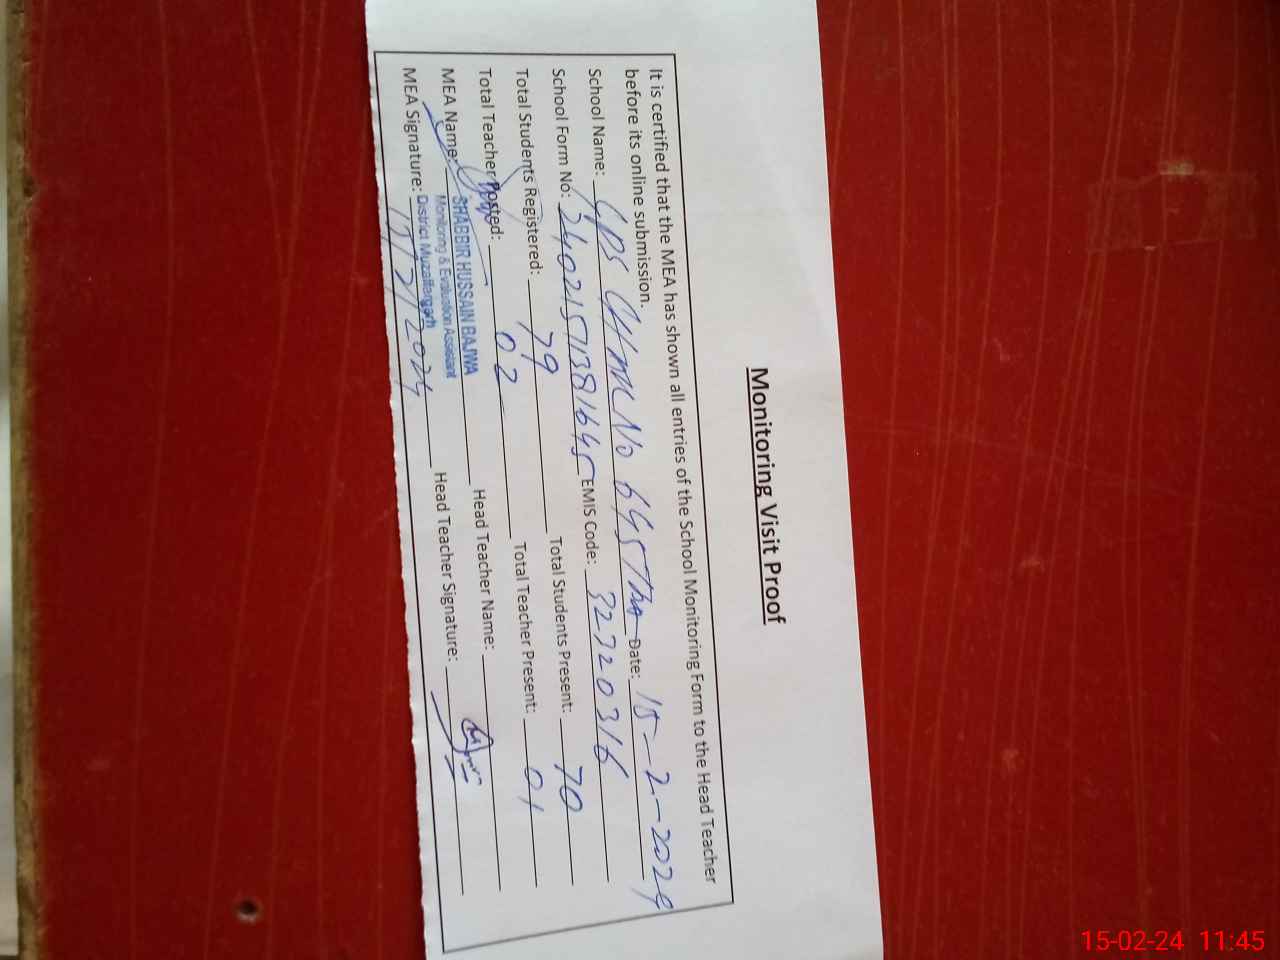 Monitoring Visit Proof
It is certified that the MEA has shown all entries of the School Monitoring Form to the Head Teacher
before its online submission.
School Name: GPS No 645 Date: 15-2-2024
School Form No: EMIS Code: 32320316
Total Students Registered: 79 Total Students Present: 70
Total Teacher Posted: 02 Total Teacher Present: 01
MEA Name: SHABBIR HUSSAIN BAJWA Head Teacher Name:
Monitoring & Evaluation Assistant
District Muzaffargarh
MEA Signature: 15/2/2024 Head Teacher Signature:
15-02-24 11:45